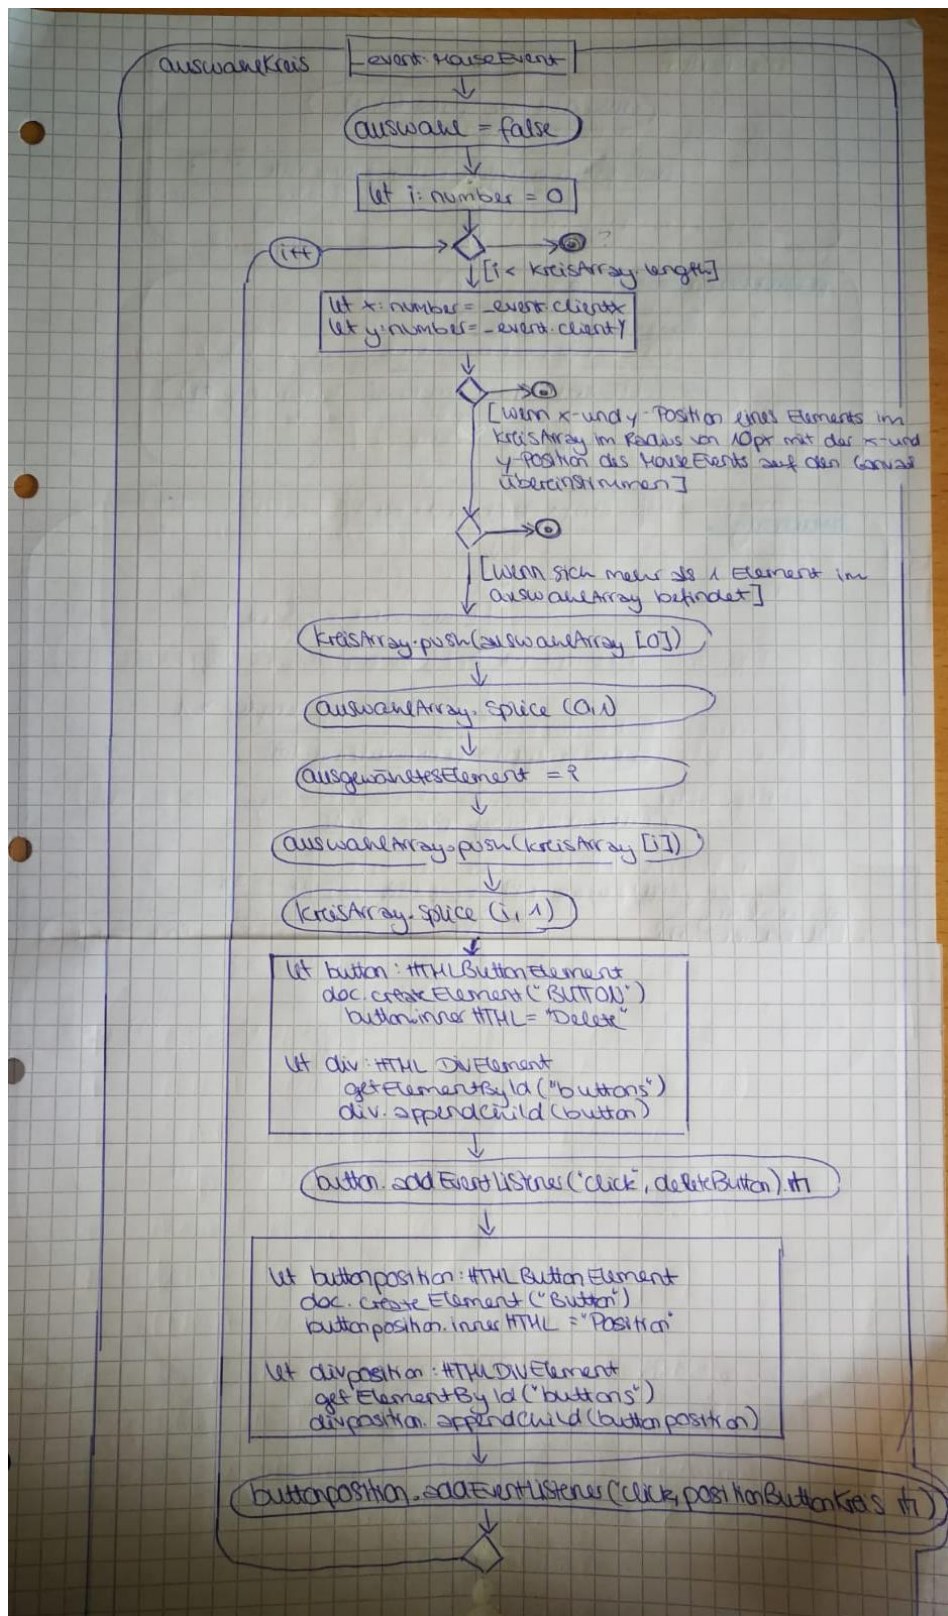 auswahlKreis
_event: MouseEvent
auswahl = false
let i: number = 0
i++
?
[i < kreisArray.length]
let x: number = _event.clientX
let y: number = _event.clientY
[wenn x- und y-Position eines Elements im
kreisArray im Radius von 10px mit der x- und
y-Position des MouseEvents auf den Canvas
übereinstimmen]
[wenn sich mehr als 1 Element im
auswahlArray befindet]
kreisArray.push(auswahlArray [0])
auswahlArray.splice (0,1)
ausgewähltesElement = i
auswahlArray.push(kreisArray [i])
kreisArray.splice (i, 1)
let button: HTMLButtonElement
doc.createElement("BUTTON")
button.innerHTML = "Delete"
let div: HTML DivElement
getElementById("buttons")
div.appendChild(button)
button.addEventListener("click", deleteButton)
let buttonposition: HTMLButtonElement
doc.createElement("Button")
buttonposition.innerHTML = "Position"
let divposition: HTMLDivElement
getElementById("buttons")
divposition.appendChild(buttonposition)
buttonposition.addEventListener(click, positionButtonKreis )